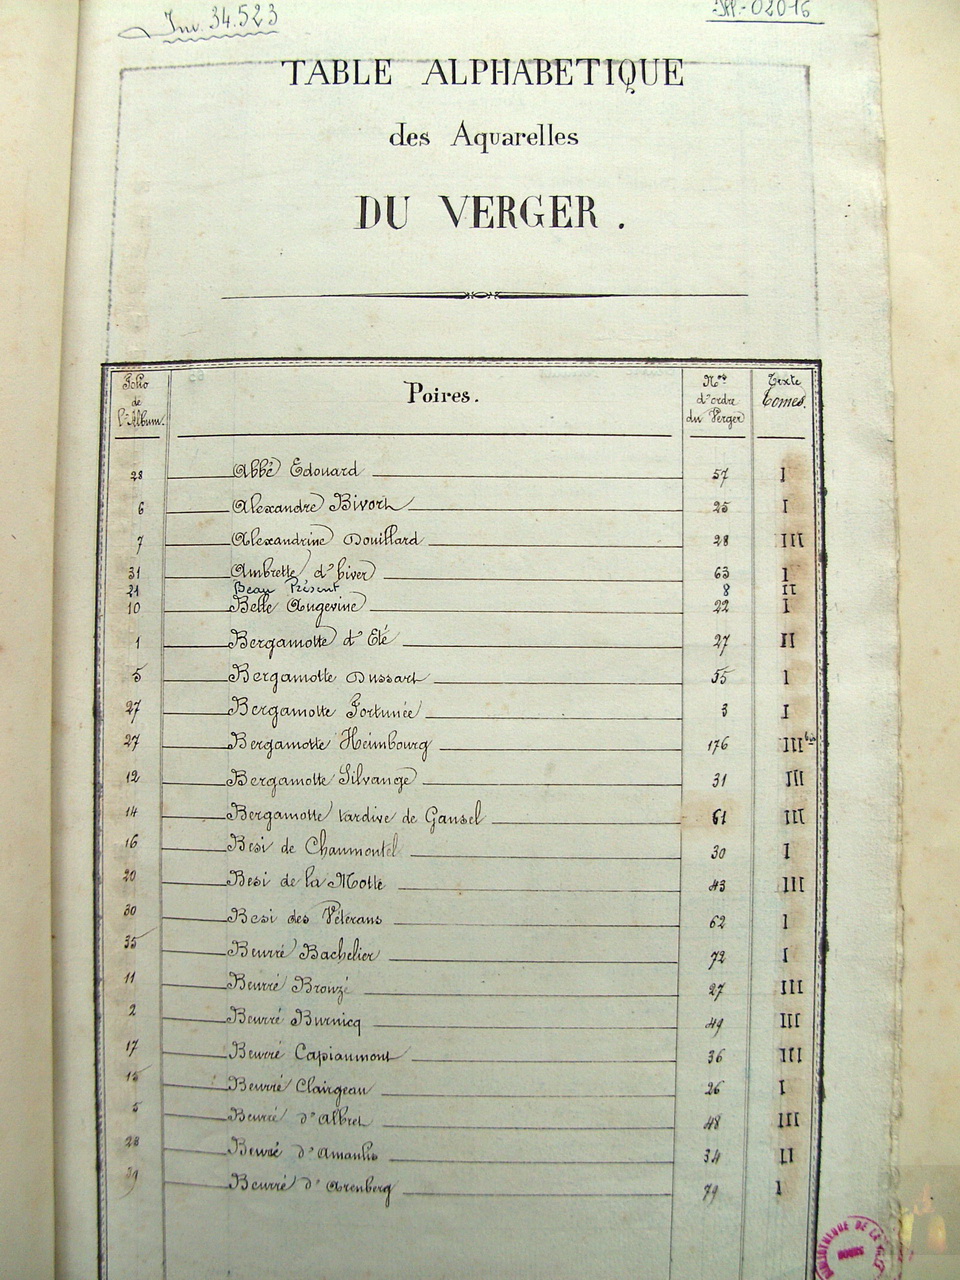 Inv. 34.523
TABLE ALPHABETIQUE
des Aquarelles
DU VERGER.
Folio de l'Album. Poires. Nos d'ordre du Verger Texte Tomes.
28 Abbé Edouard 57 I
6 Alexandre Bivort 25 I
7 Alexandrine Douillard 28 III
31 Ambrette d'hiver 63 I
21 Beau Présent 8 II
10 Belle Angevine 22 I
1 Bergamotte d'Eté 27 II
5 Bergamotte Dussart 55 I
27 Bergamotte Fortunée 3 I
27 Bergamotte Heimbourg 176 III bis
12 Bergamotte Silvange 31 III
14 Bergamotte tardive de Gansel 61 III
16 Besi de Chaumontel 30 I
20 Besi de la Motte 43 III
30 Besi des Vétérans 62 I
35 Beurré Bachelier 72 I
11 Beurré Bronzé 27 III
2 Beurré Burnicq 49 III
17 Beurré Capiaumont 36 III
15 Beurré Clairgeau 26 I
5 Beurré d'Albret 48 III
28 Beurré d'Amanlis 34 II
39 Beurré d'Arenberg 79 I
BIBLIOTHEQUE DE LA VILLE